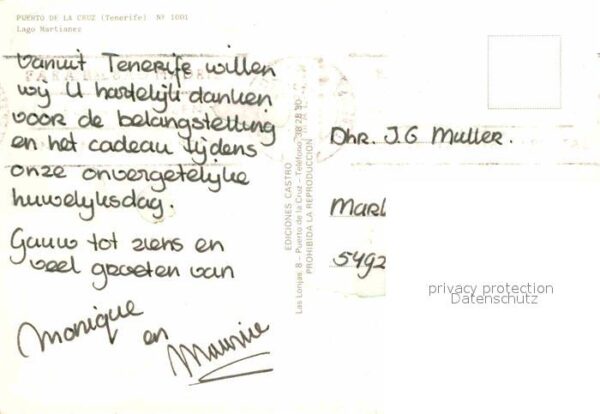 PUERTO DE LA CRUZ (Tenerife) Nº 1001
Lago Martianez
Vanuit Tenerife willen
wij U hartelijk danken
voor de belangstelling
en het cadeau tijdens
onze onvergetelijke
huwelijksdag.
Gauw tot ziens en
veel groeten van
Monique
en
Maurice
EDICIONES CASTRO
Las Lonjas, 8 - Puerto de la Cruz - Teléfono, 38 28 80
PROHIBIDA LA REPRODUCCION
Dhr. J.G Muller.
Marl
5492
privacy protection
Datenschutz